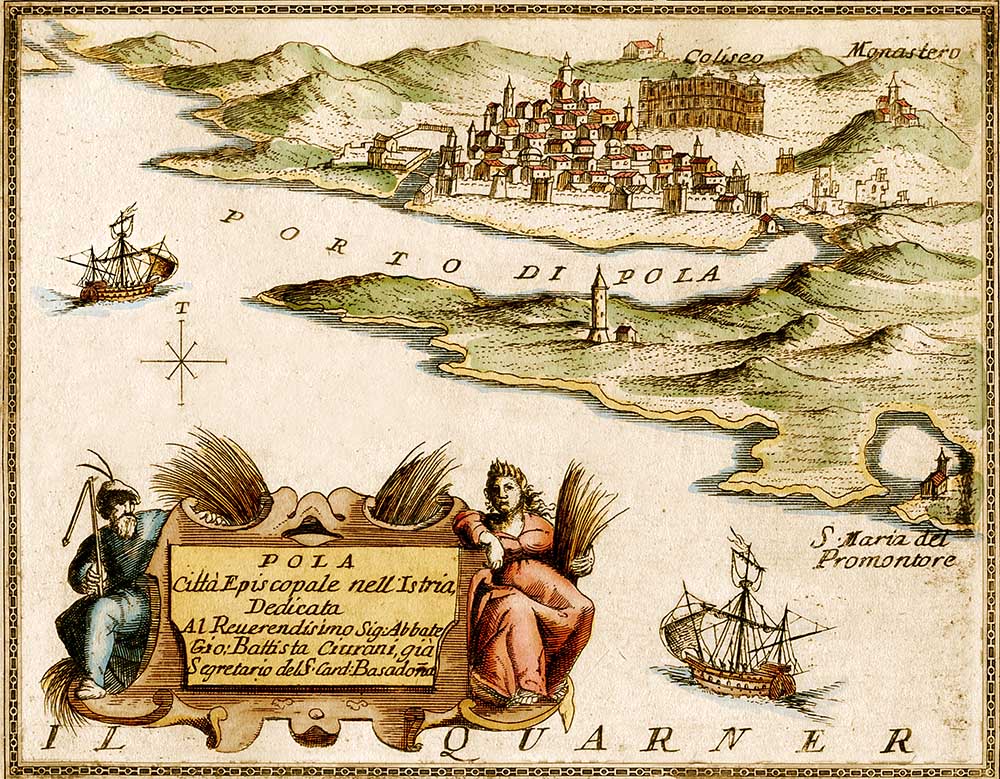 Coliseo
Monastero
PORTO DI POLA
T
S. Maria del
Promontore
POLA
Città Episcopale nell'Istria,
Dedicata
Al Reuerendisimo Sig: Abbate
Gio: Battista Ciurani, già
Segretario del S. Card: Basadoña
IL QUARNER